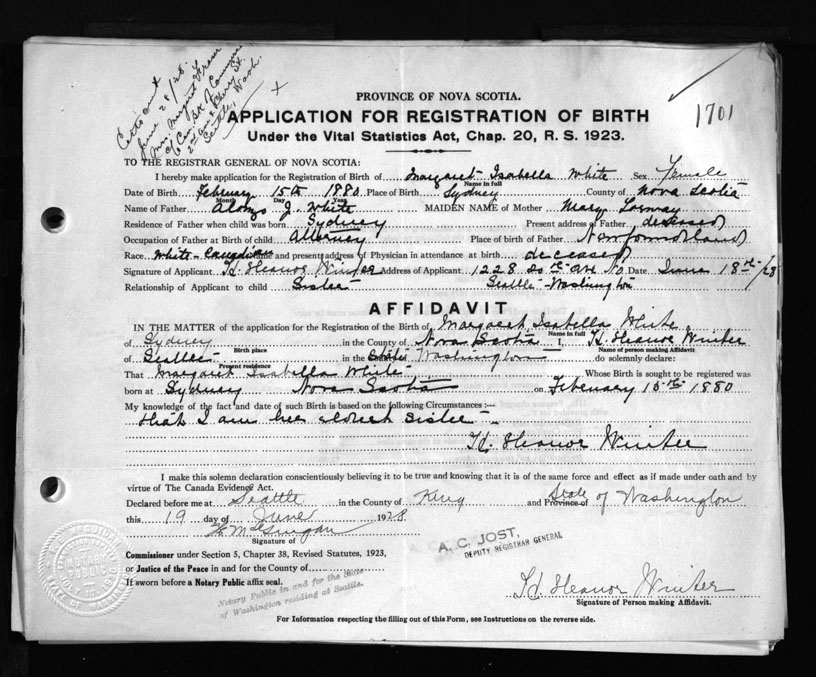 Certs out
June 28/28.
Mrs. Margaret
c/o
2nd and Cherry St.
Seattle, Wash.
X
PROVINCE OF NOVA SCOTIA.
1701
APPLICATION FOR REGISTRATION OF BIRTH
Under the Vital Statistics Act, Chap. 20, R. S. 1923.
TO THE REGISTRAR GENERAL OF NOVA SCOTIA:
I hereby make application for the Registration of Birth of Margaret Isabella White Sex Female
Name in full
Date of Birth February 15th 1880 Place of Birth Sydney County of Nova Scotia
Month Day Year
Name of Father Alonzo J. White MAIDEN NAME of Mother Mary
Residence of Father when child was born Sydney Present address of Father deceased
Occupation of Father at Birth of child Attorney Place of birth of Father Newfoundland
Race White-Canadian Name and present address of Physician in attendance at birth deceased
Signature of Applicant H. Eleanor Winter Address of Applicant 1228 20th Ave No. Date June 18th/28
Relationship of Applicant to child Sister Seattle Washington
AFFIDAVIT
IN THE MATTER of the application for the Registration of the Birth of Margaret Isabella White
Name in full
of Sydney in the County of Nova Scotia I, H. Eleanor Winter
Birth place Name of person making Affidavit
of Seattle in the State Washington do solemnly declare:
Present residence
That Margaret Isabella White Whose Birth is sought to be registered was
born at Sydney Nova Scotia on February 15th 1880
My knowledge of the fact and date of such Birth is based on the following Circumstances :—
that I am her eldest sister
H. Eleanor Winter
I make this solemn declaration conscientiously believing it to be true and knowing that it is of the same force and effect as if made under oath and by
virtue of The Canada Evidence Act.
Declared before me at Seattle in the County of King and Province of State of Washington
this 19 day of June 1928
Signature of
A. C. JOST,
DEPUTY REGISTRAR GENERAL
Commissioner under Section 5, Chapter 38, Revised Statutes, 1923,
or Justice of the Peace in and for the County of
If sworn before a Notary Public affix seal.
NOTARY PUBLIC
Notary Public in and for the State
of Washington residing at Seattle.
H. Eleanor Winter
Signature of Person making Affidavit.
For Information respecting the filling out of this Form, see Instructions on the reverse side.